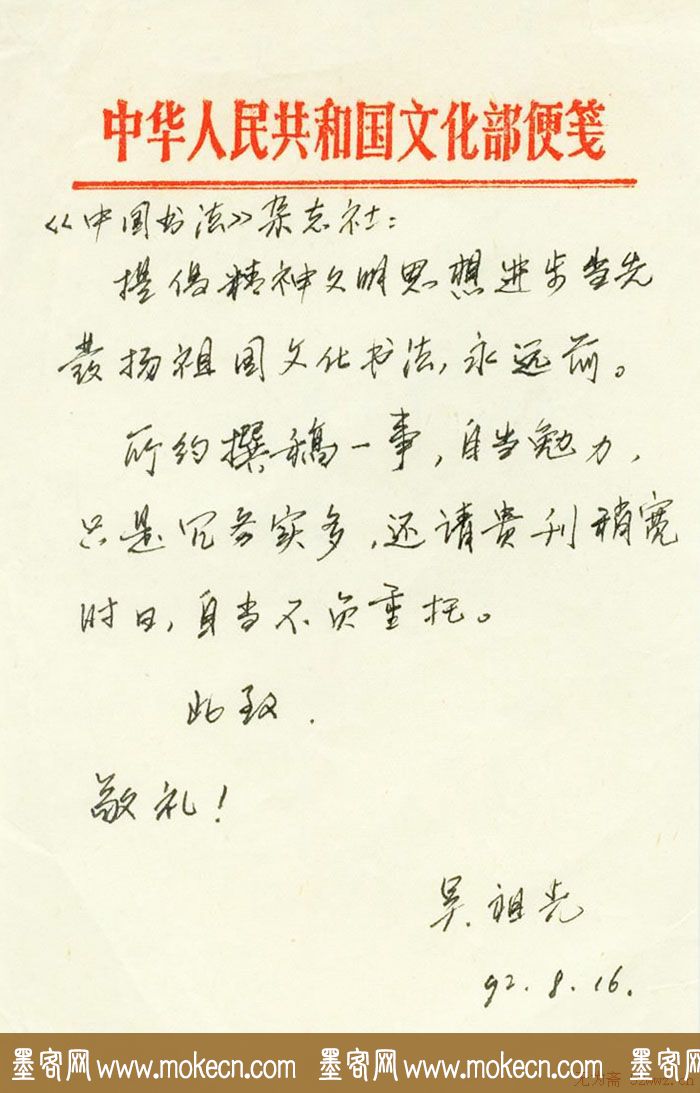 中华人民共和国文化部便笺
《中国书法》杂志社：
提倡精神文明思想进步当先
發扬祖国文化书法，永远前。
所约撰稿一事，自当勉力，
只是冗务实多，还请贵刊稍宽
时日，自当不负重托。
此致．
敬礼！
吴祖光
92.8.16.
墨客网 www.mokecn.com 墨客网 www.mokecn.com 墨客网